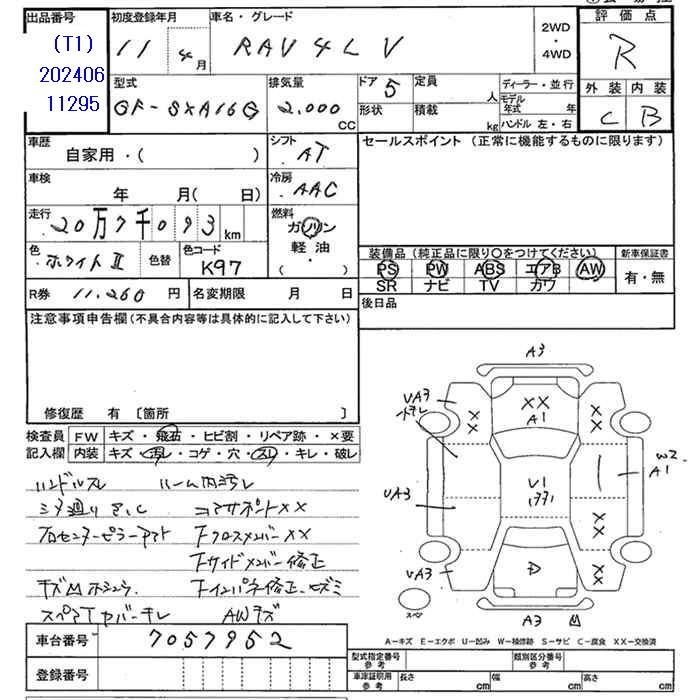 出品番号
(T1)
202406
11295
初度登録年月
11年4月
車名・グレード
RAV4L V
2WD
・
4WD
評価点
R
外装 内装
C B
型式
GF-SXA16G
排気量
2.000
CC
ドア
5
定員
人
形状
積載
kg
ディーラー・並行
モデル
年式 年
ハンドル 左・右
車歴
自家用・( )
シフト
AT
セールスポイント(正常に機能するものに限ります)
車検
年 月( 日)
冷房
AAC
走行
20万7千093km
燃料
ガソリン
軽油
・( )
色
ホワイトⅡ
色替
色コード
K97
装備品(純正品に限り○をつけてください)
新車保証書
PS PW ABS エアB AW
SR ナビ TV カワ
有・無
R券 11,260円
名変期限 月 日
後日品
注意事項申告欄(不具合内容等は具体的に記入して下さい)
修復歴 有〔箇所 〕
検査員
記入欄
FW キズ・飛石・ヒビ割・リペア跡・×要
内装 キズ・汚レ・コゲ・穴・スレ・キレ・破レ
ハンドルスレ ルーム内汚レ
コアサポートXX
FクロスメンバーXX
Fサイドメンバー修正
スペアTカバーキレ AWキズ
A3
UA3
XX
A1
XX
XX
U1
W2
A1
UA3
XX
XX
UA3
D
A3
スペア
A-キズ E-エクボ U-凹み W-補修跡 S-サビ C-腐食 XX-交換済
車台番号 7057952
登録番号
型式指定番号
参考
類別区分番号
参考
車庫証明
参考
長さ cm 幅 cm 高さ cm